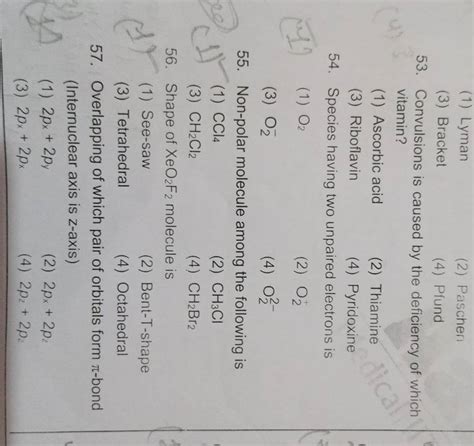 (1) Lyman (2) Paschen
(3) Bracket (4) Pfund
53. Convulsions is caused by the deficiency of which
vitamin?
(1) Ascorbic acid (2) Thiamine
(3) Riboflavin (4) Pyridoxine
54. Species having two unpaired electrons is
(1) O₂ (2) O₂⁺
(3) O₂⁻ (4) O₂²⁻
55. Non-polar molecule among the following is
(1) CCl4 (2) CH3Cl
(3) CH2Cl2 (4) CH2Br2
56. Shape of XeO2F2 molecule is
(1) See-saw (2) Bent-T-shape
(3) Tetrahedral (4) Octahedral
57. Overlapping of which pair of orbitals form π-bond
(Internuclear axis is z-axis)
(1) 2px + 2py (2) 2px + 2pz
(3) 2px + 2px (4) 2pz + 2pz
(4)
(1)
(1)
(1)